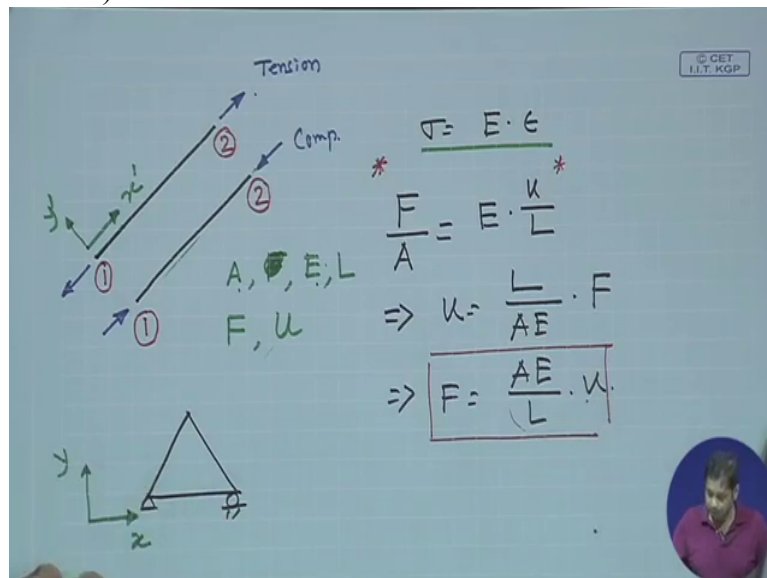 © CET
I.I.T. KGP
Tension
②
Comp.
②
y'
x'
①
①
A, E, L
F, u
σ = E · ϵ
* *
F/A = E · u/L
=> u = L/AE · F
=> F = AE/L · u.
y
x